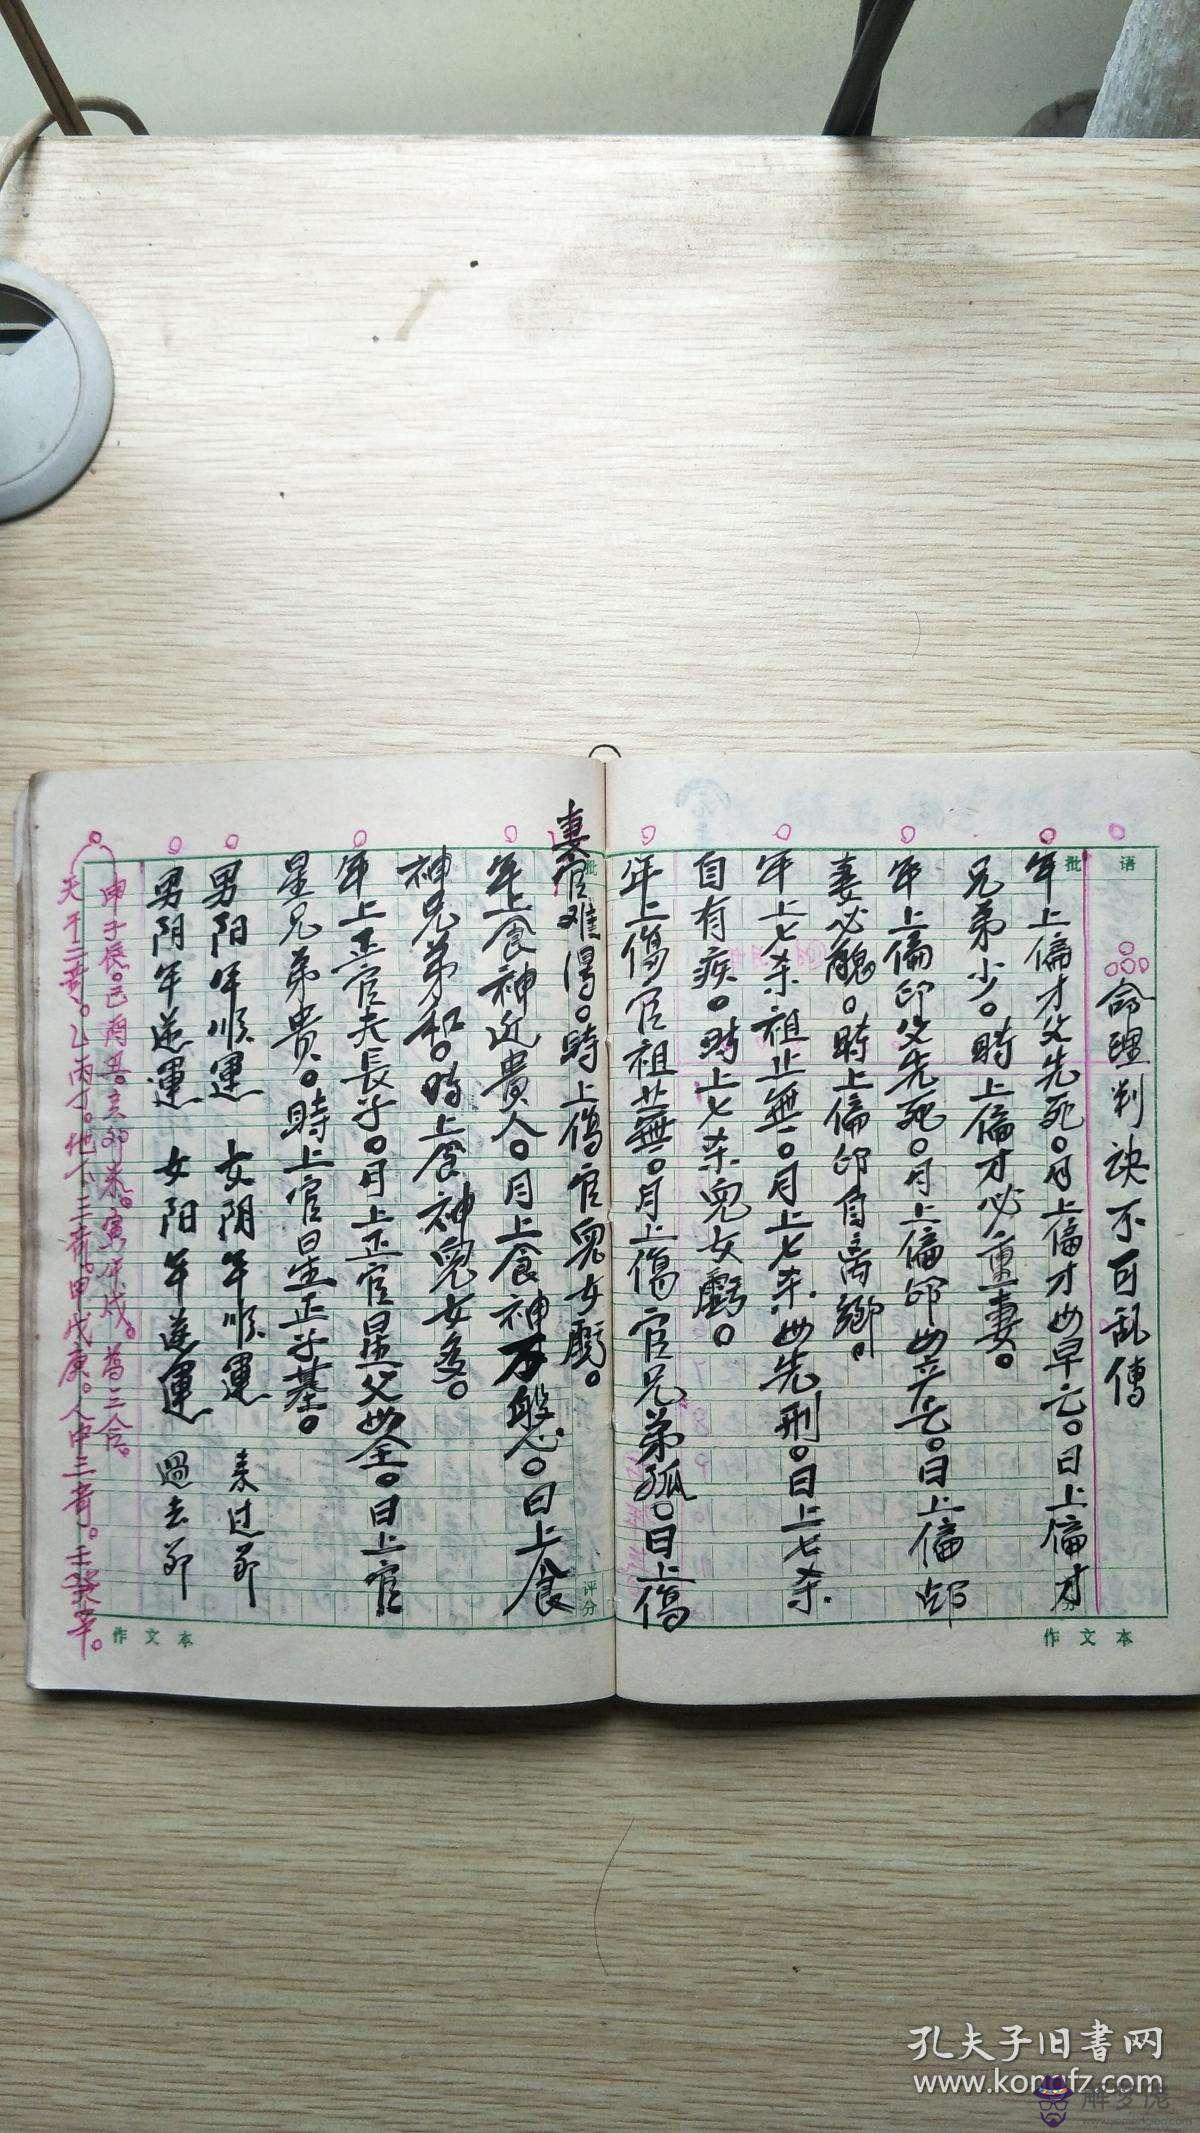 批语
命理判诀不可乱傳
年上偏才父先死。月上偏才母早亡。日上偏才
兄弟少。時上偏才必重妻。
年上偏印父先死。月上偏印母先亡。日上偏印
妻必醜。時上偏印自离鄉。
年上七杀祖上無。月上七杀母先刑。日上七杀
自有疾。時上七杀兒女虧。
年上傷官祖上無。月上傷官兄弟孤。日上傷
妻官难得。時上傷官兒女虧。
年上食神近貴人。月上食神万般。日上食
神兄弟和。時上食神兒女多。
年上正官夫長子。月上正官星父母全。日上官
星兄弟贵。時上官星正子基。
男阳年顺運 女阴年顺運 未过节
男阴年逆運 女阳年逆運 過去节
申子辰。巳酉丑。亥卯未。寅午戌。為三合。
天干三奇。乙丙丁。地下三奇。甲戊庚。人中三奇。壬癸辛。
批
评分
作文本
作文本
孔夫子旧書网
www.kongfz.com
解梦佬